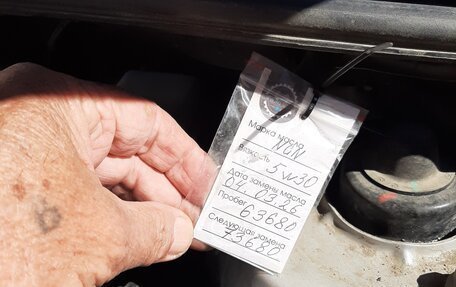 Марка масла
NGN
Вязкость
5w30
Дата замены масла
04.03.26
Пробег
63680
Следующая замена
73680